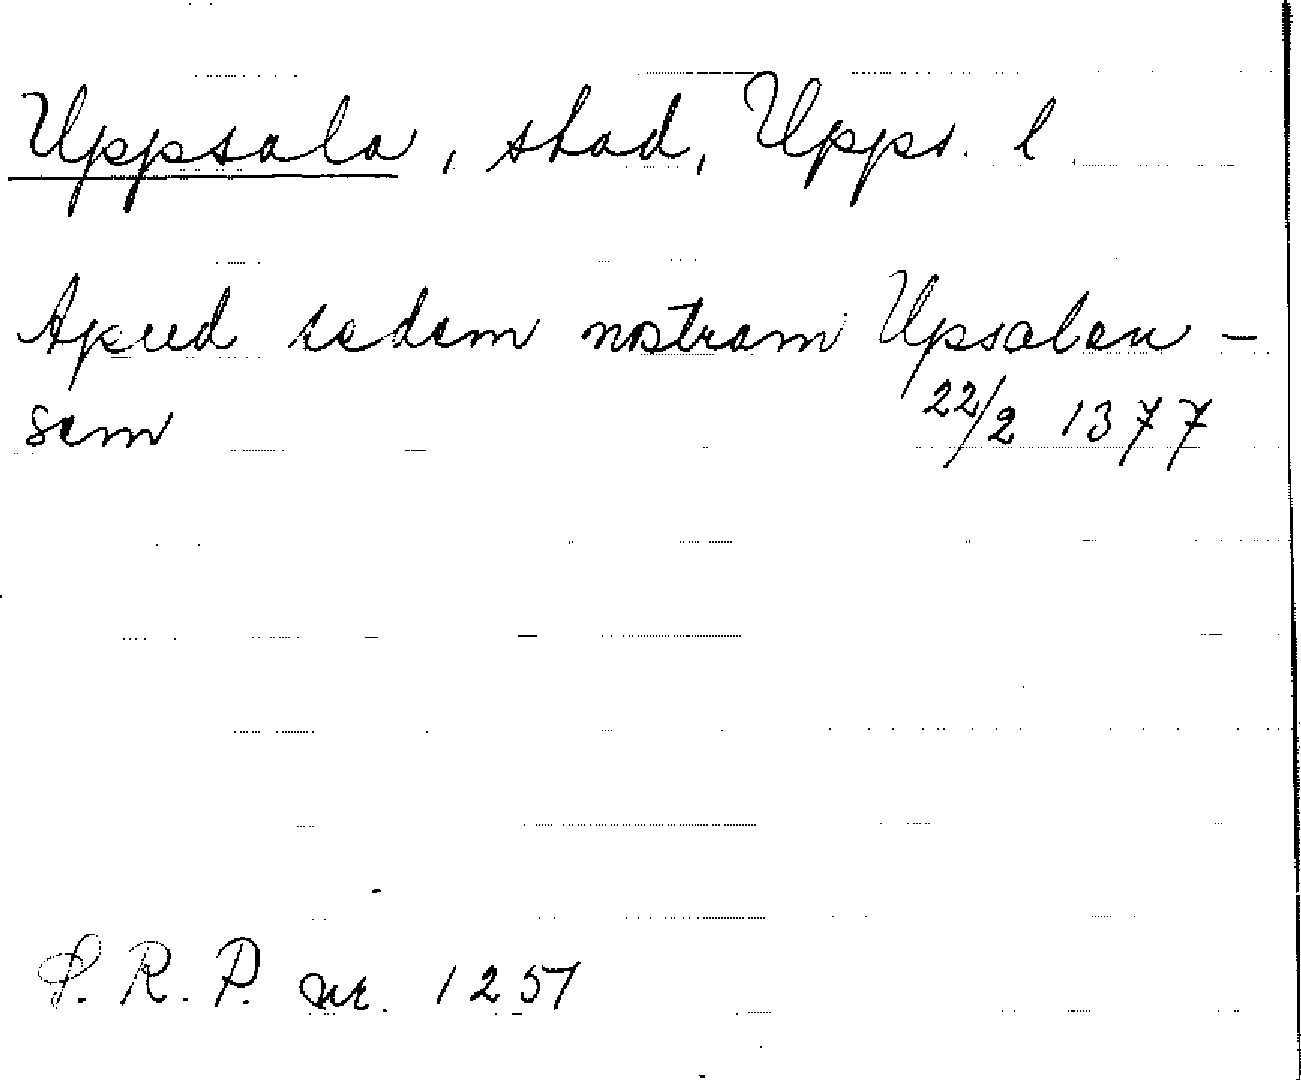 Uppsala, stad, Upps. l
Apud sedem nostram Upsalen-
sem 22/2 1377
S. R. P. nr. 1257